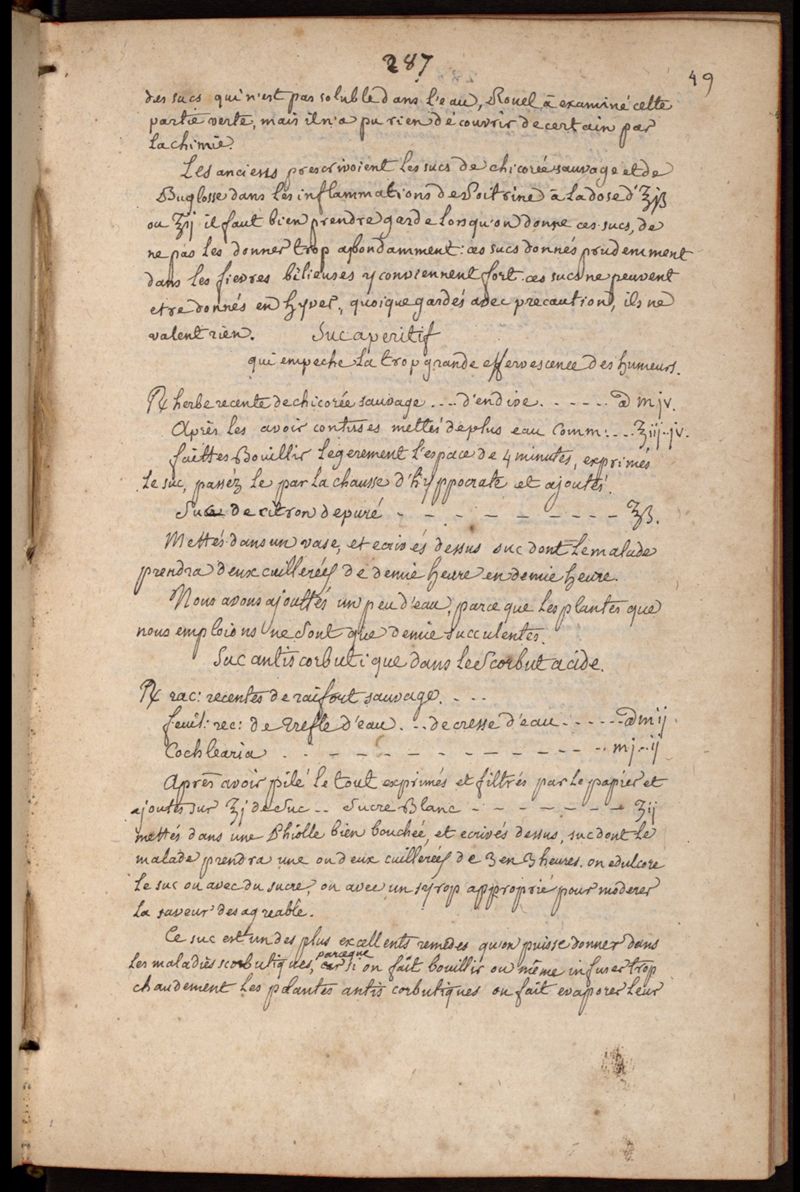 287
49
des sucs qui n'est pas soluble dans l'eau, Rouel à examiné cette
partie verte, mais il n'a pu rien découvrir de certain par
la chimie.
Les anciens prescrivoient les sucs de chicorée sauvage et de
Buglosse dans les inflammations de Poitrine à la dose d'ʒjß
ou ʒij il faut bien prendre garde lorsqu'on donne ces sucs, de
ne pas les donner trop abondamment: ces sucs donnés prudemment
dans les fievres bilieuses y conviennent fort. ces sucs ne peuvent
etre donnés en hyver, quoique gardés avec precaution, ils ne
valent rien. Suc aperitif
qui empeche la trop grande effervescence des humeurs.
℞ herbe recente de chicorée sauvage .... d'endive. - - - - - - a͞ m jv.
Après les avoir contuses mettés de plus eau comm: ... ʒiij-jv.
faittes Bouillir legerement l'espace de 4 minutes, exprimés
le suc, passéz le par la chausse d'hyppocrate et ajoutés.
Suc de citron depuré - - - - - - - - - ʒß.
Mettés dans un vase, et ecrivés dessus suc dont le malade
prendra deux cuillerées de demie heure en demie heure.
Nous avons ajouttés un peu d'eau, parce que les plantes que
nous emploions ne sont que demie succulentes.
Suc antiscorbutique dans le Scorbut acide.
℞ rac: recentes de raifort sauvage. - - -
feuil: rec: de trefle d'eau. ... de cresse d'eau - - - - - - a͞ m ij
Cochlearia . - - - - - - - - - - - - - m j-ij
Après avoir pilé le tout exprimés et filtrés par le papier et
ajoutés sur ʒj de Suc .. Sucre Blanc - - - - - - - ʒij
mettés dans une Phiolle bien bouchée, et ecrivés dessus, suc dont le
malade prendra une ou deux cuillerées de 3 en 3 heures. on edulcore
le suc ou avec du sucre, ou avec un syrop approprié pour moderer
la saveur desagreable.
Ce suc est un des plus excellents remèdes qu'on puisse donner dans
les maladies scorbutiques, parceque si on fait bouillir ou même infuser trop
chaudement les plantes antis corbutiques on fait evaporer leur